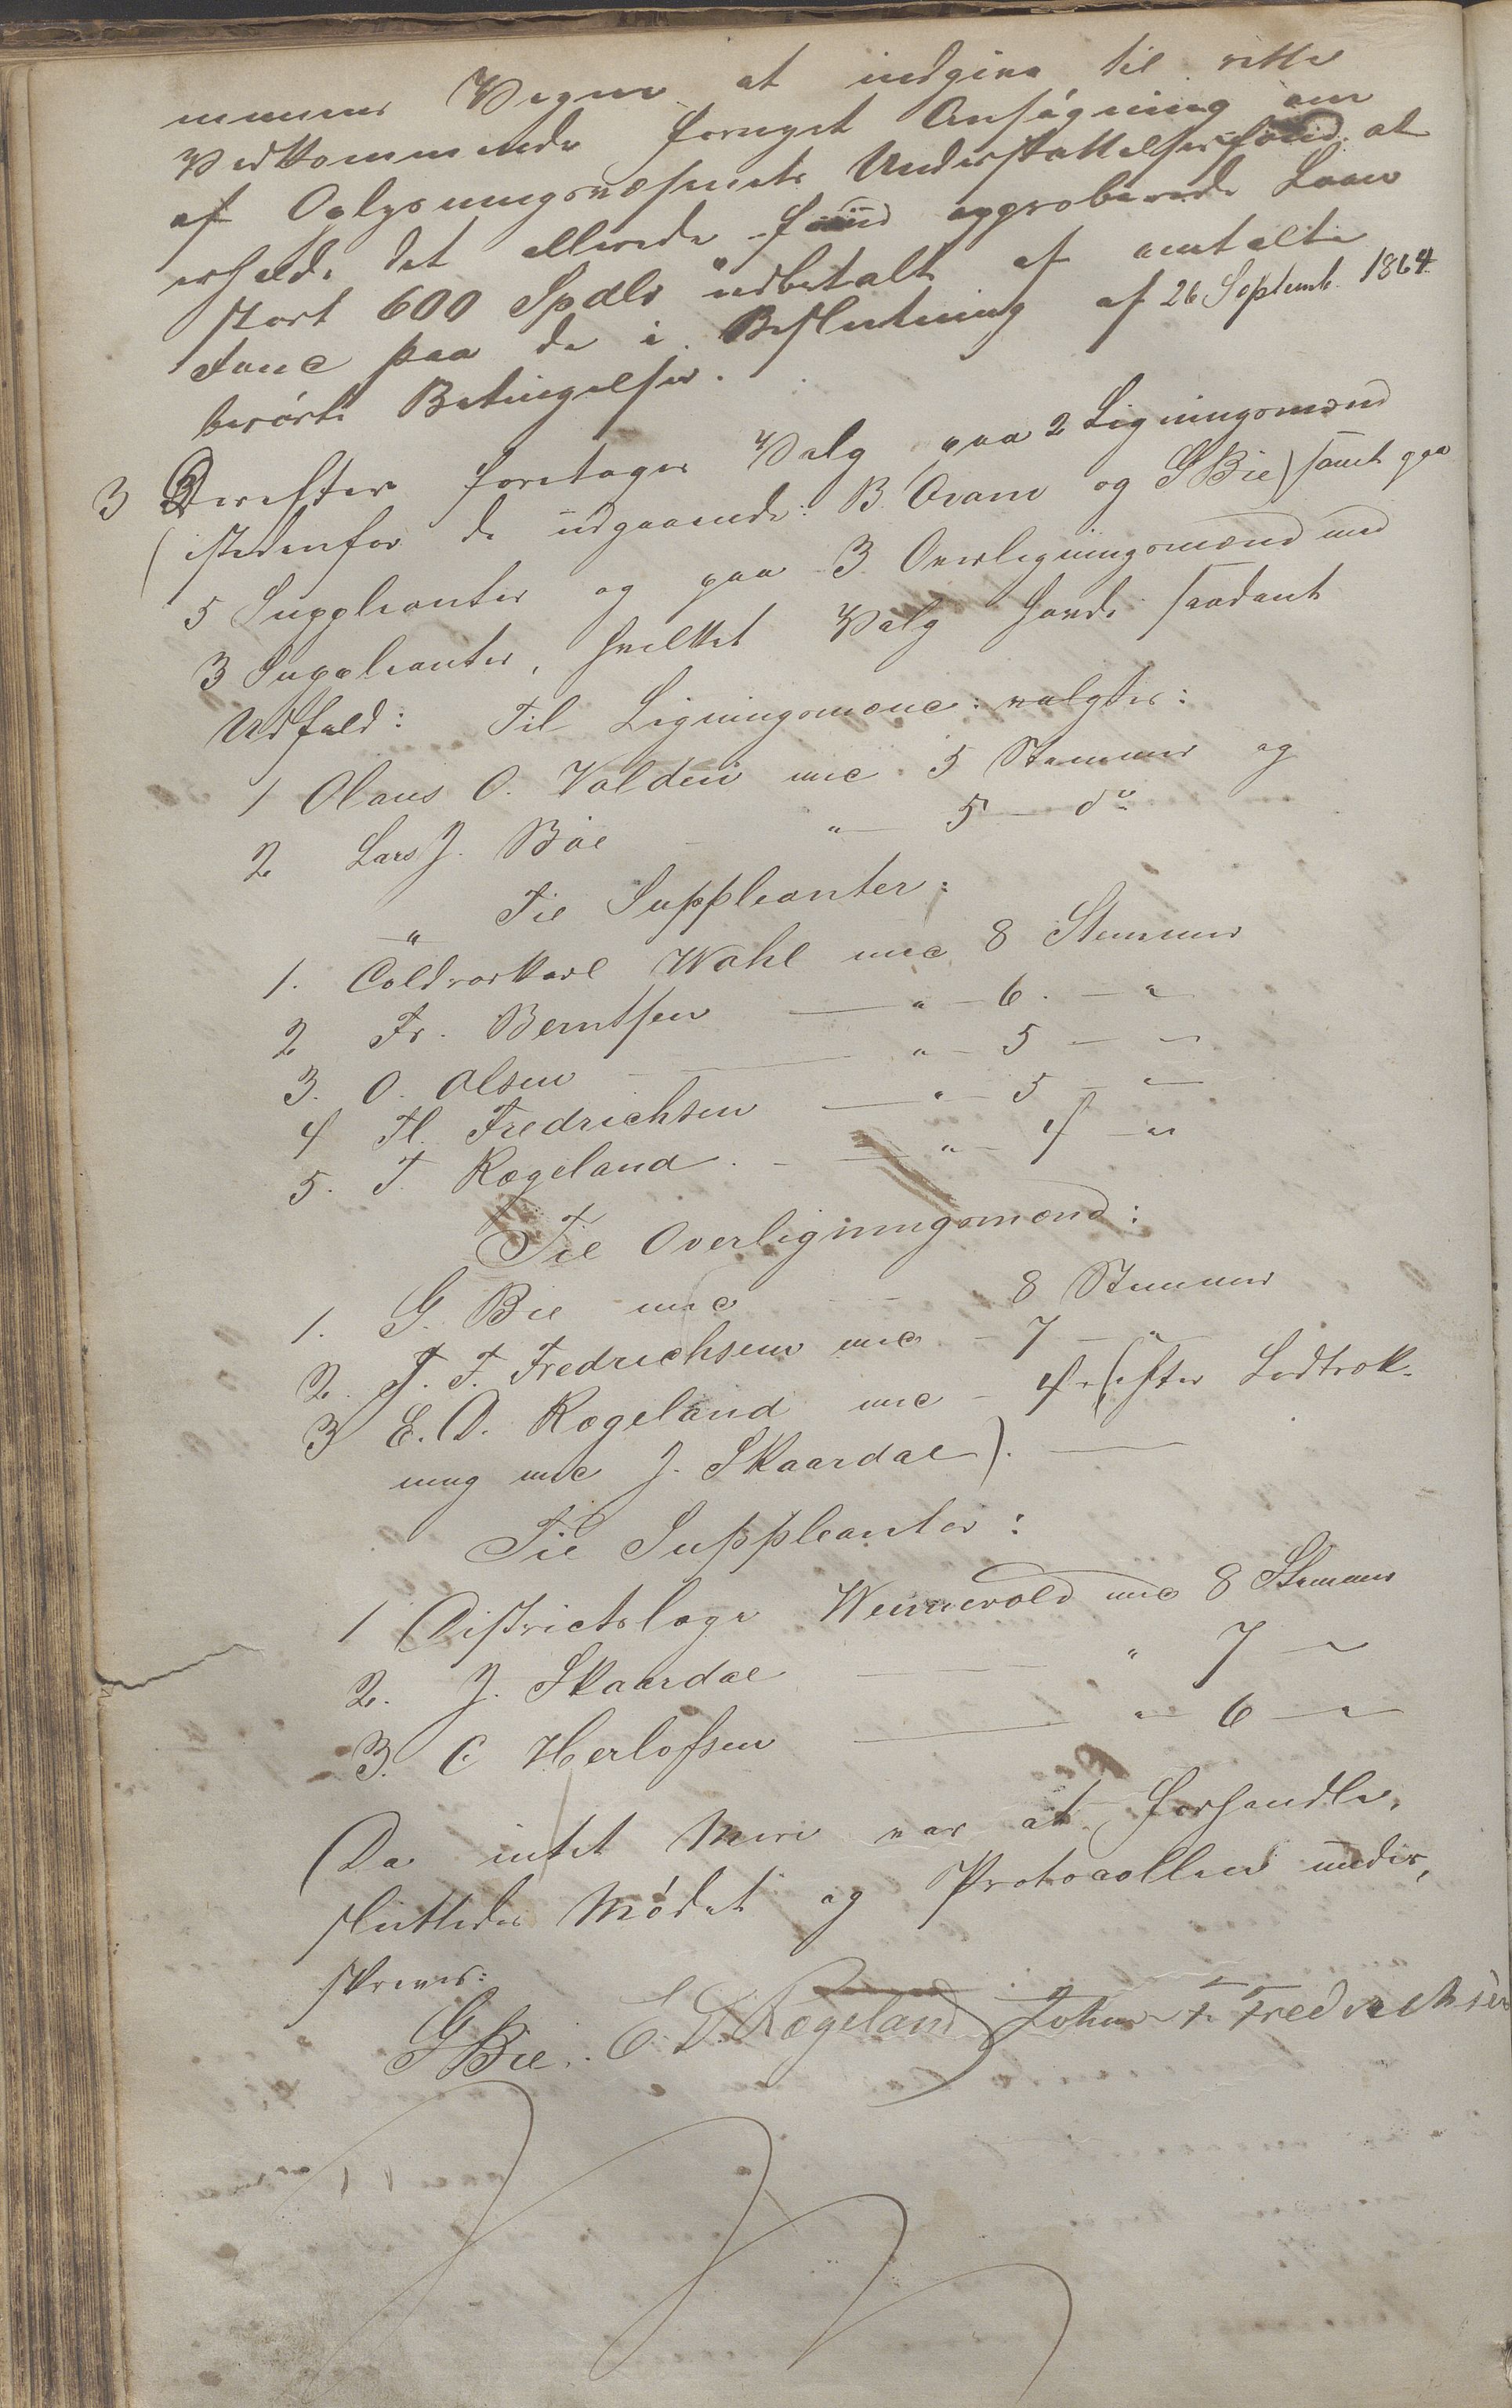 munens Vegne at indgive til rette
Vedkommende fornyet Ansøgning om
af Oplysningsvæsenets Understøttelsesfond at
erholde det allerede approberede Laan
stort 600 Spdlr udbetalt af omtalte
Fond paa de i Beslutning af 26 Septemb. 1864
berørte Betingelser.
3 Derefter foretoges Valg paa 2 Ligningsmænd
(istedenfor de udgaaende: B. Ovam og G Bie) samt paa
5 Suppleanter og paa 3 Overligningsmænd med
3 Suppleanter, hvilket Valg havde saadant
Udfald: Til Ligningsmænd valgtes:
1 Olaus O. Valden med 5 Stemmer og
2 Lars J. Bøe - " 5 - do
" Til Suppleanter:
1. Wahl med 8 Stemmer
2 Fr. Berntsen — " - 6. - "
3. O. Olsen — " - 5 - "
4 Fl. Fredrichsen — " - 5 - "
5. T. Rægeland. - — " - 4 - "
Til Overligningsmænd:
1. G. Bie med - - 8 Stemmer
2. J. F. Fredrichsen med - 7 - "
3 E. D. Rægeland med - 4 - (efter Lodtræk-
ning med J. Skaardal). —
Til Suppleanter:
1 Districtslæge Wennevold med 8 Stemmer
2. J. Skaardal — " 7 - "
3. C Herlofsen — " - 6 - "
Da intet mere var at forhandle,
sluttedes Mødet og Protocollen under,
skreves:
GBie. E. D. Rægeland John F. Fredrichsen